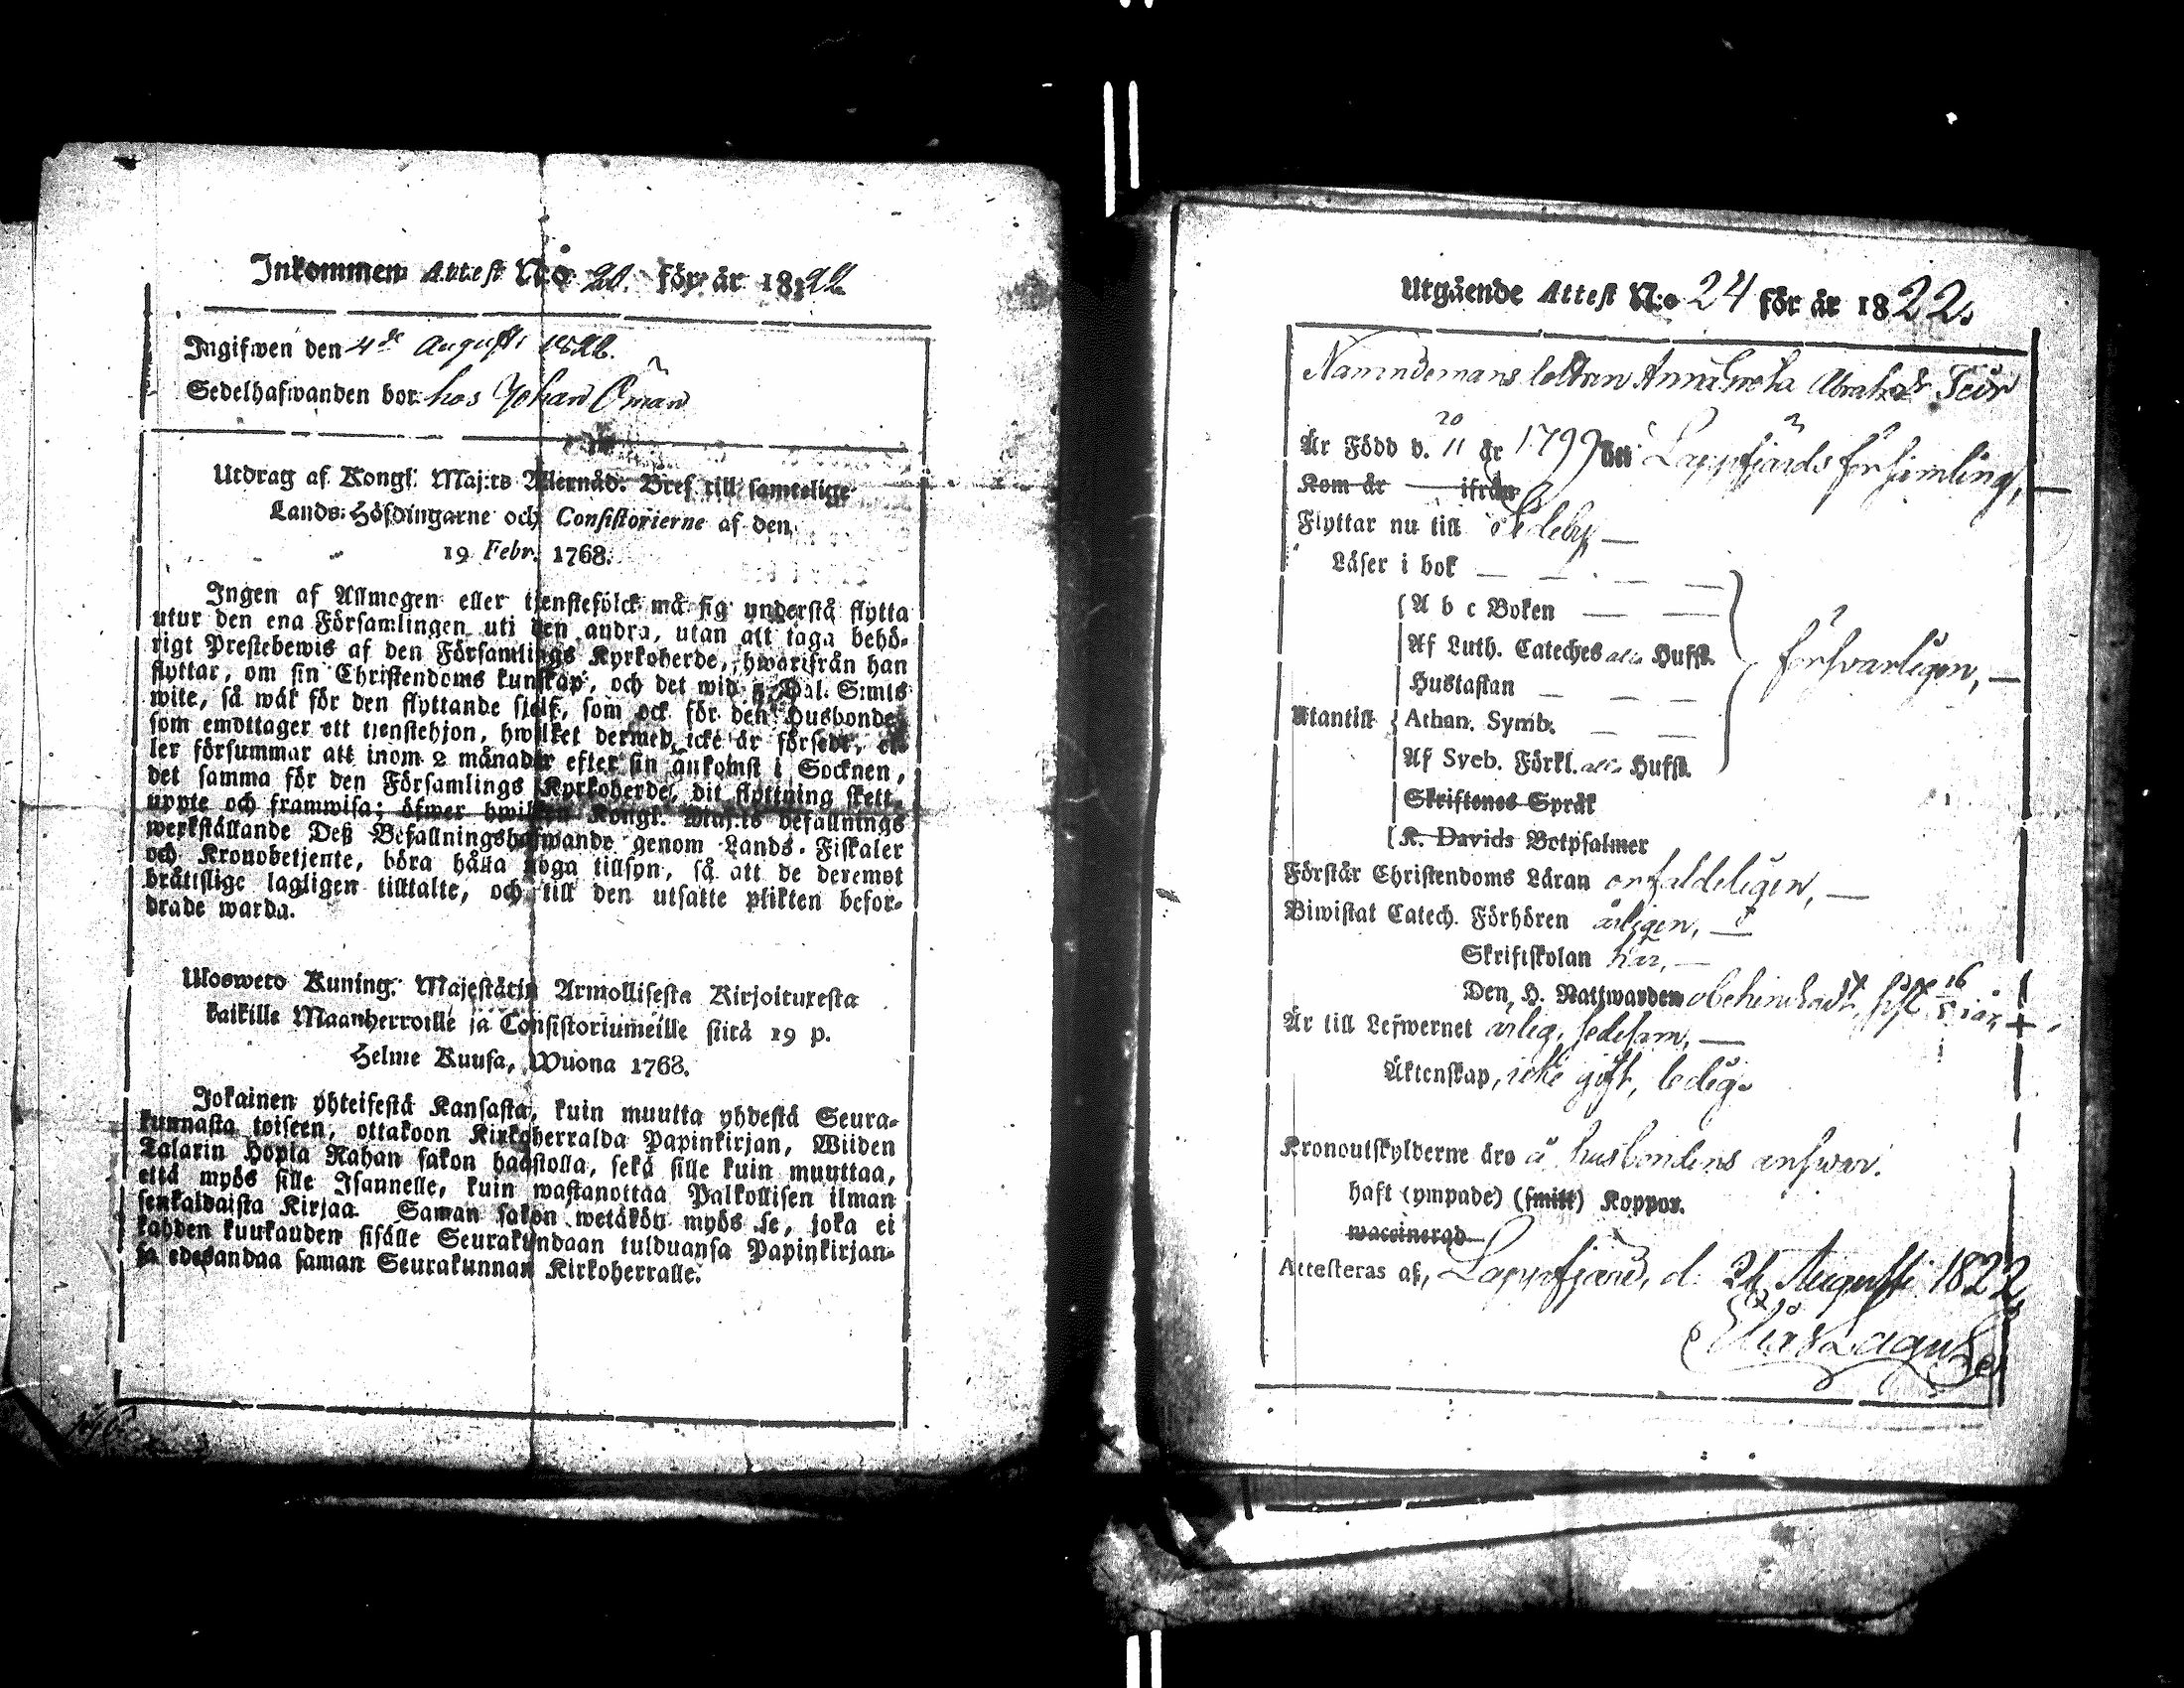 Inkommen Attest N:o 20. för år 1822.
Ingifwen den 4de Augusti 1822.
Sedelhafwanden bor hos Johan Öman
Utdrag af Kongl. Maj:ts Allernåd. Bref till samtelige
Lands-Höfdingarne och Consistorierne af den
19 Febr. 1768.
Ingen af Allmogen eller tjenstefolck må sig understå flytta
utur den ena Församlingen uti den andra, utan att taga behö-
rigt Prestebewis af den Församlings Kyrkoherde, hwarifrån han
flyttar, om sin Christendoms kunskap, och det wid 5 Dal. S:mts
wite, så wäl för den flyttande sjelf, som ock för den Husbonde,
som emottager ett tjenstehjon, hwilket dermed icke är försedt, el-
ler försummar att inom 2 månader efter sin ankomst i Socknen,
det samma för den Församlings Kyrkoherde, dit flyttning skett,
uppte och framwisa; öfwer hwilken Kongl. Maj:ts befallnings
werkställande Deß Befallningshafwande genom Lands-Fiskaler
och Kronobetjente, böra hålla noga tillsyn, så att de deremot
bråttslige lagligen tilltalte, och till den utsatte plikten befor-
drade warda.
Ulosweto Kuning. Majestätin Armollisesta Kirjoituxesta
kaikille Maanherroille ja Consistoriumeille siitä 19 p.
Helme Kuusa, Wuona 1768.
Jokainen yhteisestä Kansasta, kuin muutta yhdestä Seura-
kunnasta toiseen, ottakoon Kirkoherralda Papinkirjan, Wiiden
Talarin Hopia Rahan sakon haastolla, sekä sille kuin muuttaa,
että myös sille Isannelle, kuin wastanottaa Palkollisen ilman
senkaldaista Kirjaa. Saman sakon wetäkön myös se, joka ei
kahden kuukauden sisälle Seurakundaan tulduansa Papinkirjan-
sa edesandaa saman Seurakunnan Kirkoherralle.
Utgående Attest N:o 24 för år 1822.
Nämndemans dottren Anna Greta Abrahsdr
Är Född d. 20/11 år 1799 uti Lappfjärds församling,
Kom år — ifrån
Flyttar nu till Sideby —
Läser i bok — — — —
A b c Boken — —
Af Luth. Cateches alla Hufst.
Hustaflan — — —
försvarligen, —
Utantill Athan. Symb. — —
Af Sveb. Förkl. alla Hufst.
Skriftenes Språk
K. Davids Botpsalmer
Förstår Christendoms Läran enfaldeligen, —
Biwistat Catech. Förhören årligen, —
Skriftskolan här, —
Den H. Nattwarden obehindradt, sist 16
Är till Lefwernet ärlig, sedesam, —
Äktenskap, icke gift, ledig.
Kronoutskylderne äro å husbondens answar.
haft (ympade) (smitt) Koppor.
waccinerad
Attesteras af, Lappfjärd, d. Augusti 1822,
Elias Lagus